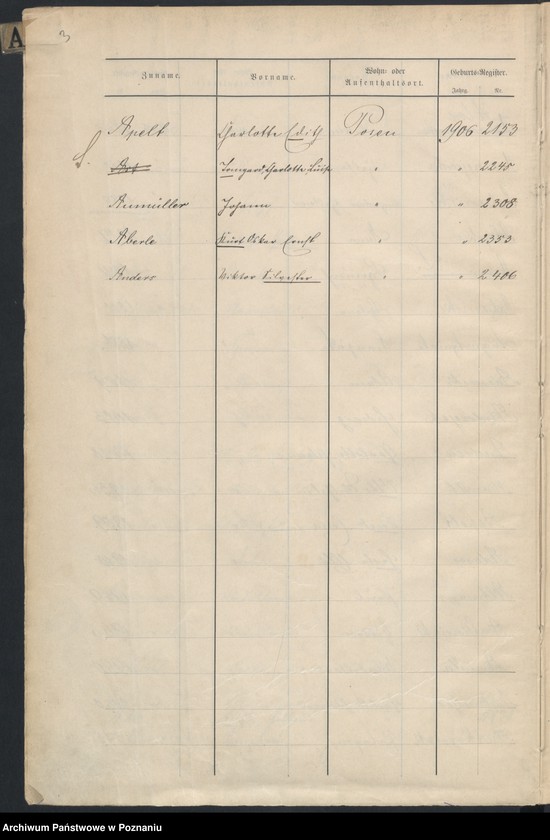 A
3
Zuname. Vorname. Wohn- oder Aufenthaltsort. Geburts-Register.
Jahrg. Nr.
Apelt Charlotte Edith Posen 1906 2153
S. Irmgard, Charlotte, Luise " " 2248
Aumüller Johann " " 2308
Aberle Kurt Oskar Ernst " " 2353
Anders Viktor Silvester " " 2406
Archiwum Państwowe w Poznaniu